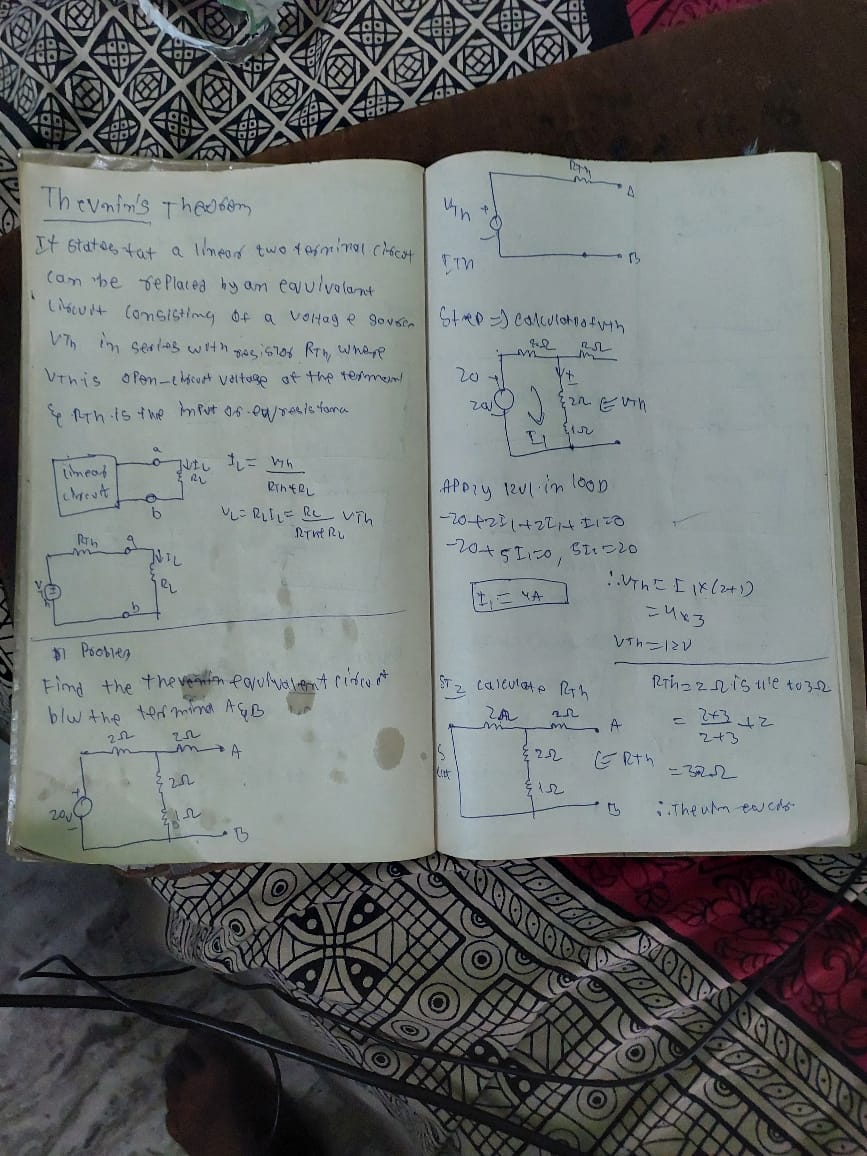 Thevnin's Theorem
It states tat a linear two terminal circut
can be replaced by an equivalant
circuit consisting of a voltage source
VTh in series with resistor RTh, where
VTh is open-circut voltage of the terminal
& RTh is the input or eq resistana
linear
circut
a
b
IL
RL
IL = VTh / RTh+RL
VL = RLIL = RL / RTh+RL VTh
RTh
a
IL
RL
b
Problem
Find the thevenin equivalent circut
b/w the termina A&B
2Ω 2Ω A
2Ω
20V 1Ω
B
RTh
A
VTh +
-
B
ITh
Step => calculation of VTh
2Ω 2Ω
20 +
2Ω VTh
1Ω
I1
Apply KVL in loop
-20+2I1+2I1+I1=0
-20+5I1=0, 5I1=20
I1 = 4A
∴ VTh = I1×(2+1)
= 4×3
VTh=12V
calculate RTh
2Ω 2Ω A
2Ω RTh
1Ω
B
RTh=2Ω is lle to 3Ω
= 2+3 / 2+3 +2
∴ Thevnin